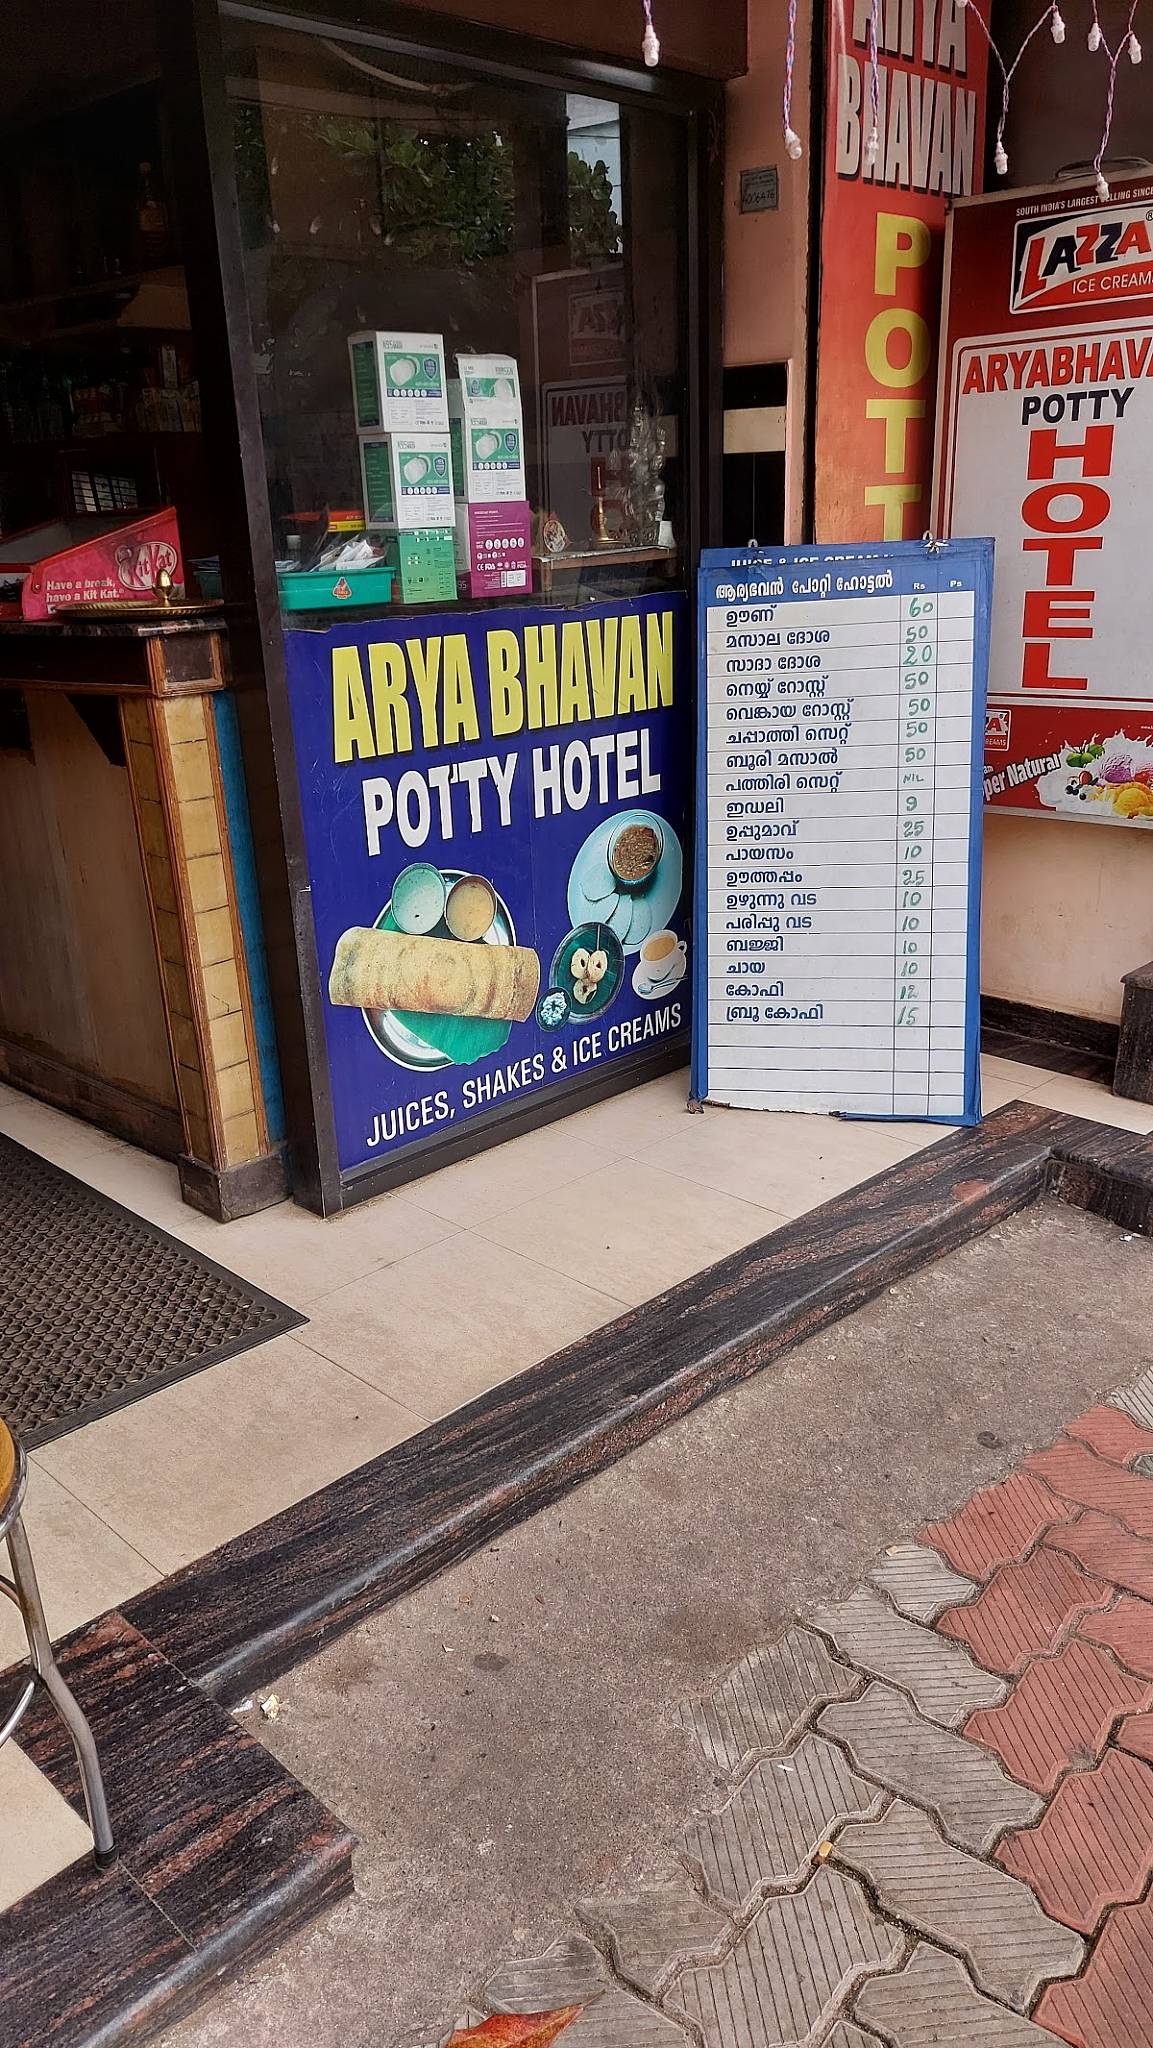 ARYA
BHAVAN
POTT
SOUTH INDIA'S LARGEST SELLING SINCE
LAZZA®
ICE CREAM
ARYABHAVA
POTTY
HOTEL
per Natural
KitKat
Have a break,
have a Kit Kat.
ARYA BHAVAN
POTTY HOTEL
JUICES, SHAKES & ICE CREAMS
JUICE & ICE CREAM
ആര്യഭവൻ പോറ്റി ഹോട്ടൽ Rs Ps
ഊണ് 60
മസാല ദോശ 50
സാദാ ദോശ 20
നെയ്യ് റോസ്റ്റ് 50
വെങ്കായ റോസ്റ്റ് 50
ചപ്പാത്തി സെറ്റ് 50
ബൂരി മസാൽ 50
പത്തിരി സെറ്റ് NIL
ഇഡലി 9
ഉപ്പുമാവ് 25
പായസം 10
ഊത്തപ്പം 25
ഉഴുന്നു വട 10
പരിപ്പു വട 10
ബജ്ജി 10
ചായ 10
കോഫി 12
ബ്രൂ കോഫി 15